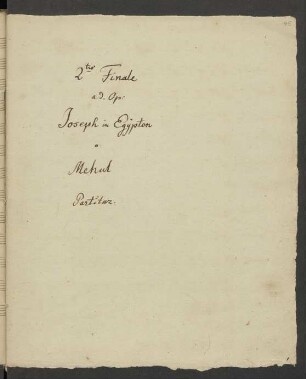 2ter Finale
a. d. Opr.
Joseph in Egÿpten
a
Mehul
Partitur.